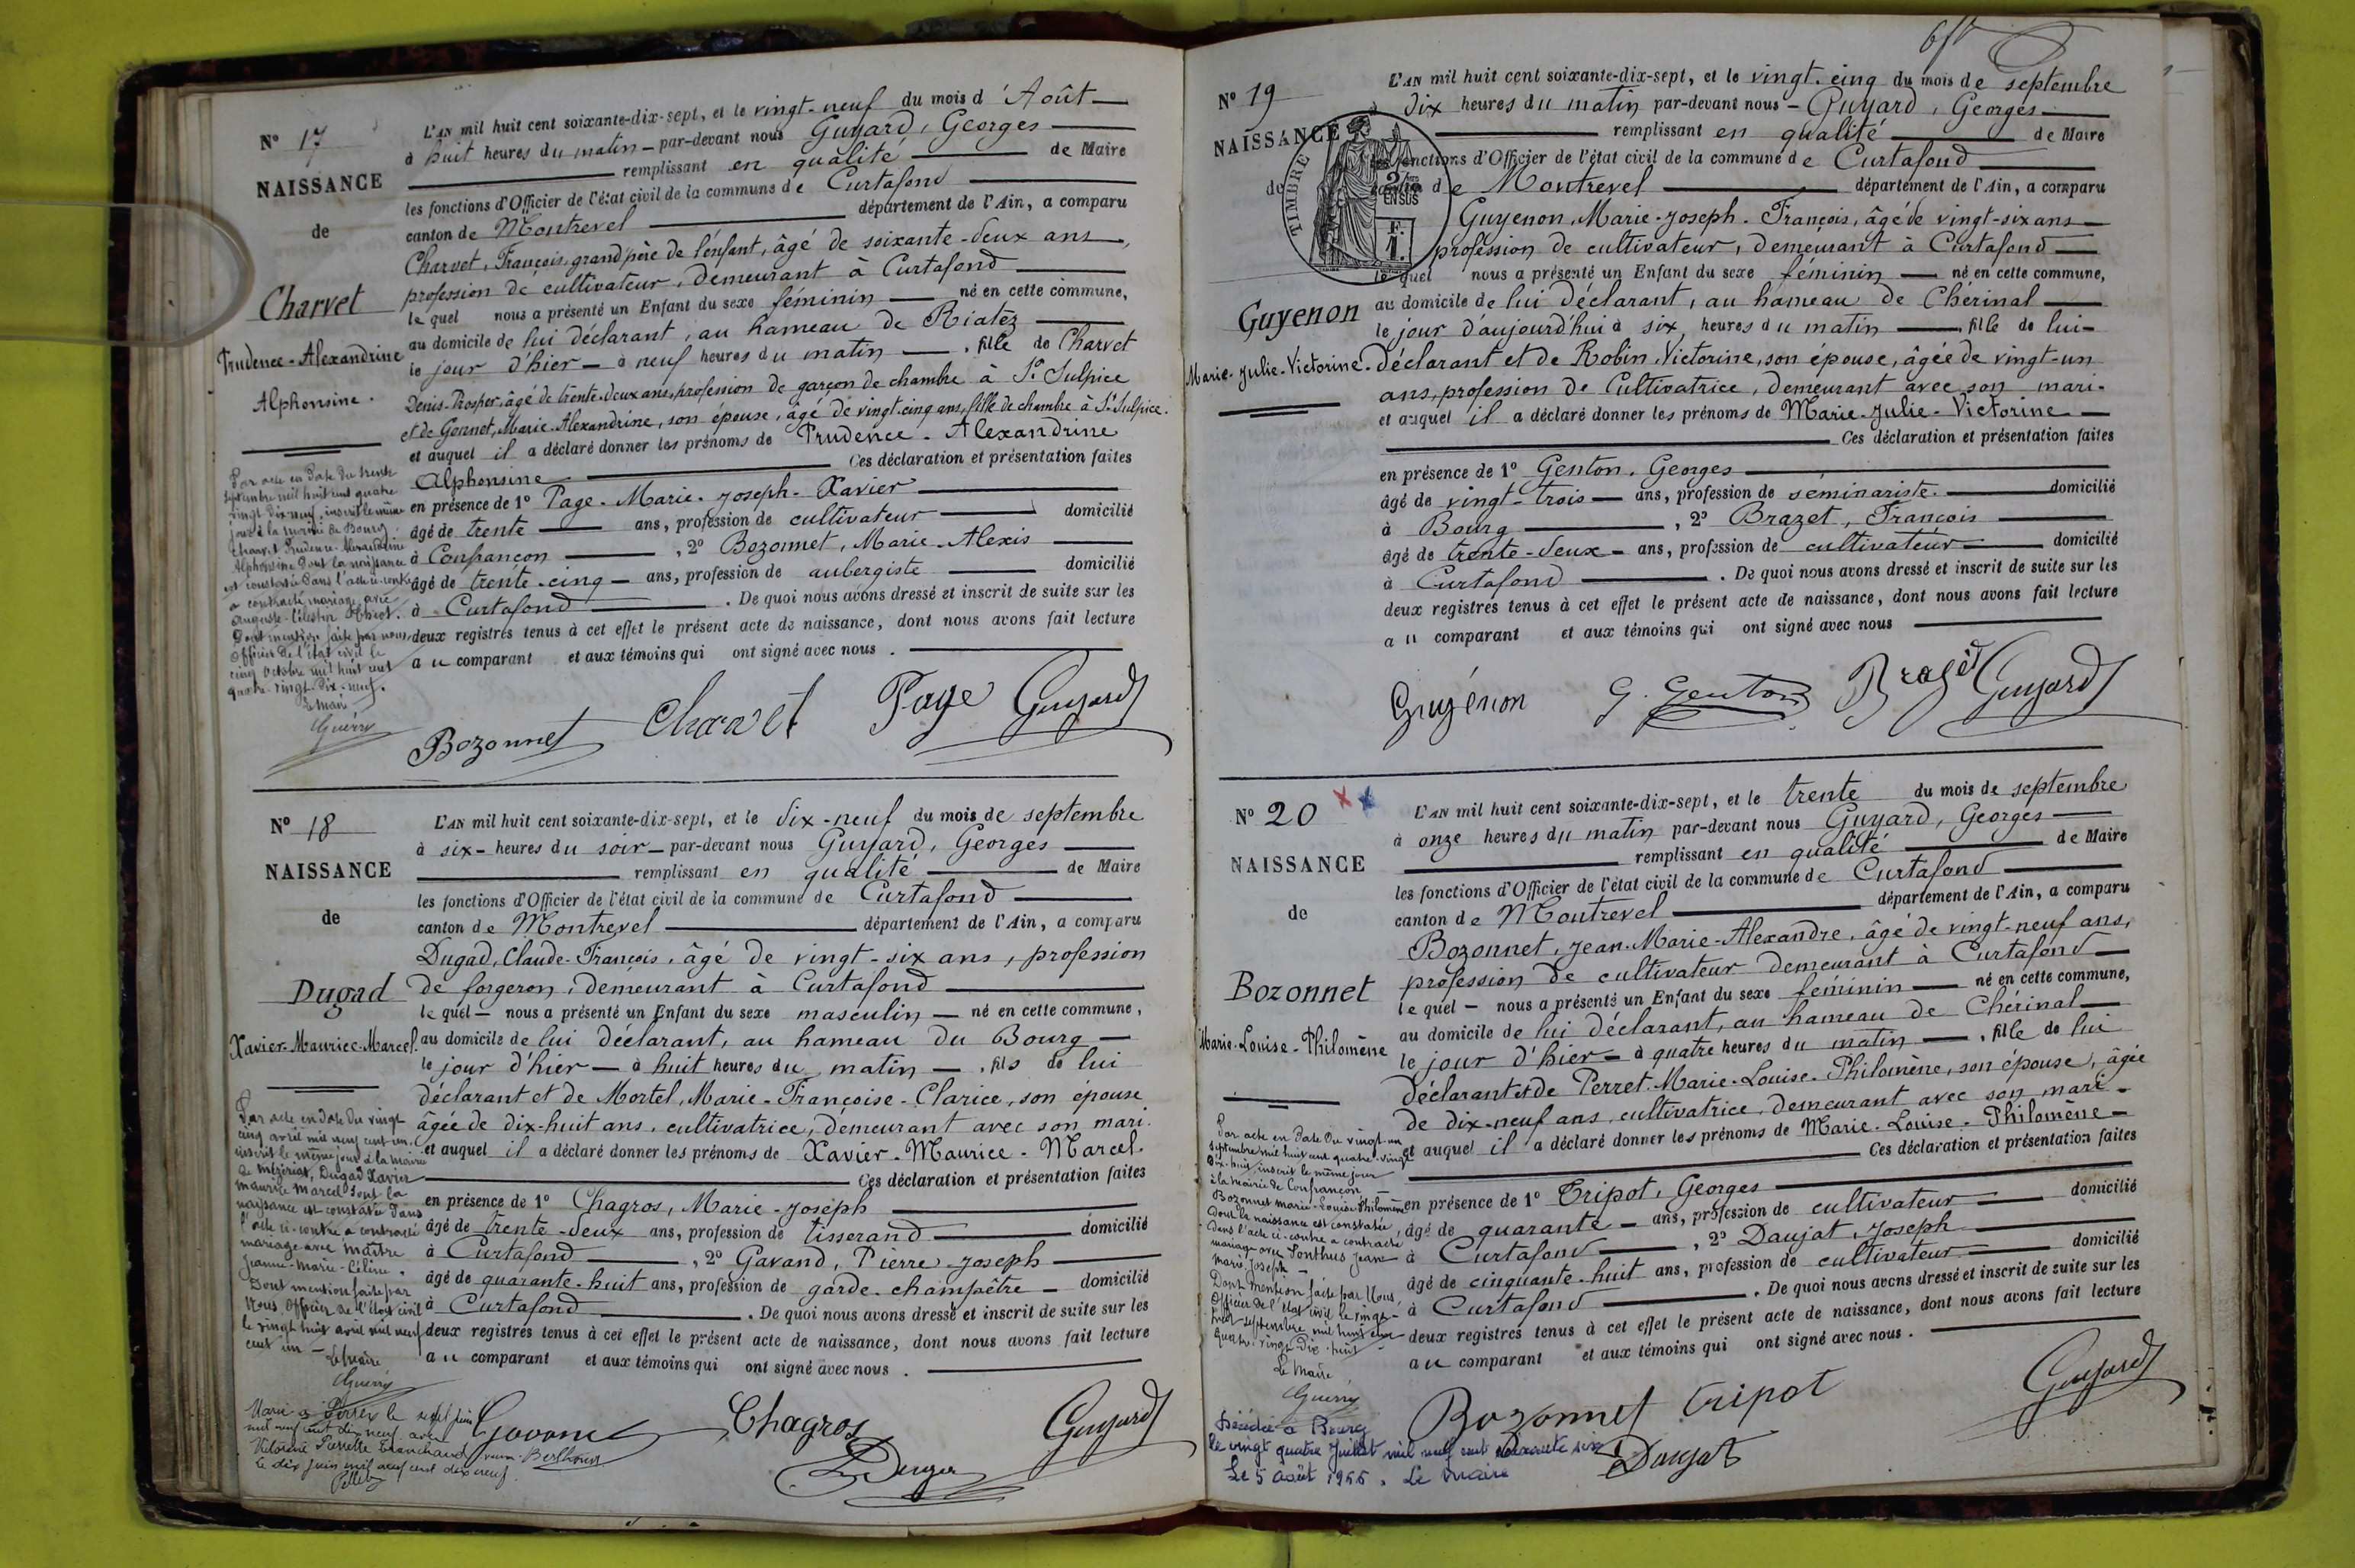 N° 17
NAISSANCE
de
Charvet
Prudence-Alexandrine
Alphonsine.
L'AN mil huit cent soixante-dix-sept, et le vingt-neuf du mois d'Août
à huit heures du matin par-devant nous Guyard, Georges
remplissant en qualité de Maire
les fonctions d'Officier de l'état civil de la commune de Curtafond
canton de Montrevel département de l'Ain, a comparu
Charvet, François, grand père de l'enfant, âgé de soixante-deux ans,
profession de cultivateur, demeurant à Curtafond
le quel nous a présenté un Enfant du sexe féminin né en cette commune,
au domicile de lui déclarant, au hameau de Riatez
le jour d'hier à neuf heures du matin, fille de Charvet
Denis-Prosper, âgé de trente-deux ans, profession de garçon de chambre à St Sulpice
et de Gonnet, Marie-Alexandrine, son épouse, âgé de vingt-cinq ans, fille de chambre à St Sulpice.
et auquel il a déclaré donner les prénoms de Prudence-Alexandrine
Alphonsine Ces déclaration et présentation faites
en présence de 1° Page-Marie-Joseph-Xavier
âgé de trente ans, profession de cultivateur domicilié
à Confrançon, 2° Bozonnet, Marie-Alexis
âgé de trente-cinq ans, profession de aubergiste domicilié
à Curtafond. De quoi nous avons dressé et inscrit de suite sur les
deux registres tenus à cet effet le présent acte de naissance, dont nous avons fait lecture
au comparant et aux témoins qui ont signé avec nous.
Par acte en date du trente
septembre mil huit cent quatre
vingt dix neuf, inscrit le même
jour à la mairie de Bourg
Charvet Prudence-Alexandrine
Alphonsine dont la naissance
est constatée dans l'acte ci-contre
a contracté mariage avec
Auguste-Célestin
Dont mention faite par nous
Officier de l'état civil le
cinq octobre mil huit cent
quatre-vingt-dix-neuf.
Le Maire
Guerry
Bozonnet Charvet Page Guyard
N° 18
NAISSANCE
de
Dugad
Xavier-Maurice-Marcel.
L'AN mil huit cent soixante-dix-sept, et le dix-neuf du mois de septembre
à six heures du soir par-devant nous Guyard, Georges
remplissant en qualité de Maire
les fonctions d'Officier de l'état civil de la commune de Curtafond
canton de Montrevel département de l'Ain, a comparu
Dugad, Claude-François, âgé de vingt-six ans, profession
de forgeron, demeurant à Curtafond
le quel nous a présenté un Enfant du sexe masculin né en cette commune,
au domicile de lui déclarant, au hameau du Bourg
le jour d'hier à huit heures du matin, fils de lui
déclarant et de Mortel, Marie-Françoise-Clarice, son épouse
âgée de dix-huit ans, cultivatrice, demeurant avec son mari.
et auquel il a déclaré donner les prénoms de Xavier-Maurice-Marcel.
Ces déclaration et présentation faites
en présence de 1° Chagros, Marie-Joseph
âgé de trente-deux ans, profession de tisserand domicilié
à Curtafond, 2° Gavand, Pierre-Joseph
âgé de quarante-huit ans, profession de garde-champêtre domicilié
à Curtafond. De quoi nous avons dressé et inscrit de suite sur les
deux registres tenus à cet effet le présent acte de naissance, dont nous avons fait lecture
au comparant et aux témoins qui ont signé avec nous.
Par acte en date du vingt
cinq avril mil neuf cent un,
inscrit le même jour à la mairie
de Mézériat, Dugad Xavier
Maurice Marcel dont la
naissance est constatée dans
l'acte ci-contre a contracté
mariage avec Maître
Jeanne-Marie-Céline.
Dont mention faite par
Nous, Officier de l'Etat civil
le vingt huit avril mil neuf
cent un
Le Maire
Guerry
Marié à le sept juin
mil neuf cent dix neuf avec
Victorine Pierrette
Le dix juin mil neuf cent dix neuf.
Chagros Guyard
N° 19
NAISSANCE
de
TIMBRE
EN SUS
Guyenon
Marie-Julie-Victorine.
L'AN mil huit cent soixante-dix-sept, et le vingt-cinq du mois de septembre
à dix heures du matin par-devant nous Guyard, Georges
remplissant en qualité de Maire
les fonctions d'Officier de l'état civil de la commune de Curtafond
canton de Montrevel département de l'Ain, a comparu
Guyenon, Marie-Joseph-François, âgé de vingt-six ans
profession de cultivateur, demeurant à Curtafond
le quel nous a présenté un Enfant du sexe féminin né en cette commune,
au domicile de lui déclarant, au hameau de Chérinal
le jour d'aujourd'hui à six heures du matin, fille de lui
déclarant et de Robin, Victorine, son épouse, âgée de vingt-un
ans, profession de Cultivatrice, demeurant avec son mari.
et auquel il a déclaré donner les prénoms de Marie-Julie-Victorine
Ces déclaration et présentation faites
en présence de 1° Genton, Georges
âgé de vingt-trois ans, profession de séminariste. domicilié
à Bourg, 2° Brazet, François
âgé de trente-deux ans, profession de cultivateur domicilié
à Curtafond. De quoi nous avons dressé et inscrit de suite sur les
deux registres tenus à cet effet le présent acte de naissance, dont nous avons fait lecture
au comparant et aux témoins qui ont signé avec nous
Guyénon G. Genton Brazet Guyard
N° 20
NAISSANCE
de
Bozonnet
Marie-Louise-Philomène
L'AN mil huit cent soixante-dix-sept, et le trente du mois de septembre
à onze heures du matin par-devant nous Guyard, Georges
remplissant en qualité de Maire
les fonctions d'Officier de l'état civil de la commune de Curtafond
canton de Montrevel département de l'Ain, a comparu
Bozonnet, Jean-Marie-Alexandre, âgé de vingt-neuf ans,
profession de cultivateur demeurant à Curtafond
le quel nous a présenté un Enfant du sexe féminin né en cette commune,
au domicile de lui déclarant, au hameau de Chérinal
le jour d'hier à quatre heures du matin, fille de lui
déclarant et de Perret-Marie-Louise-Philomène, son épouse, âgée
de dix-neuf ans, cultivatrice, demeurant avec son mari
et auquel il a déclaré donner les prénoms de Marie-Louise-Philomène
Ces déclaration et présentation faites
en présence de 1° Tripot, Georges
âgé de quarante ans, profession de cultivateur domicilié
à Curtafond, 2° Daujat, Joseph
âgé de cinquante-huit ans, profession de cultivateur domicilié
à Curtafond. De quoi nous avons dressé et inscrit de suite sur les
deux registres tenus à cet effet le présent acte de naissance, dont nous avons fait lecture
au comparant et aux témoins qui ont signé avec nous.
Par acte en date du vingt-un
septembre mil huit cent quatre-vingt
dix-huit inscrit le même jour
à la mairie de Confrançon
Bozonnet Marie-Louise-Philomène
dont la naissance est constatée
dans l'acte ci-contre a contracté
mariage avec Ponthus Jean
Marie-Joseph
Dont mention faite par Nous,
Officier de l'état civil le vingt-
huit septembre mil huit cent
quatre-vingt-dix-huit
Le Maire
Guerry
Décédée à Bourg
le vingt quatre Juillet mil neuf cent soixante six
Le 5 août 1966. Le Maire
Bozonnet Tripot Guyard
Daujat